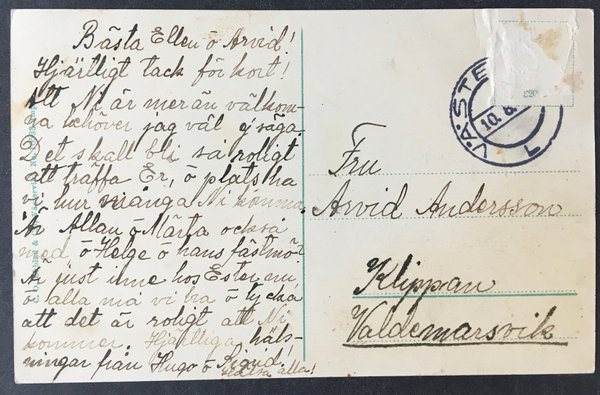 Bästa Ellen o Arvid!
Hjärtligt tack för kort!
Att Ni är mer än välkom-
na behöver jag väl ej säga.
Det skall bli så roligt
att träffa Er, o plats ha
vi hur många Ni
Är Allan o Märta också
med, o Helge o hans fästmö?
Är just inne hos Ester nu,
o alla må vi bra o tycka
att det är roligt att Ni
kommer. Hjärtliga häls-
ningar från Hugo o Sigrid!
alla!
VÄSTE
10. 8.
L
Fru
Arvid Andersson
Klippan
Valdemarsvik